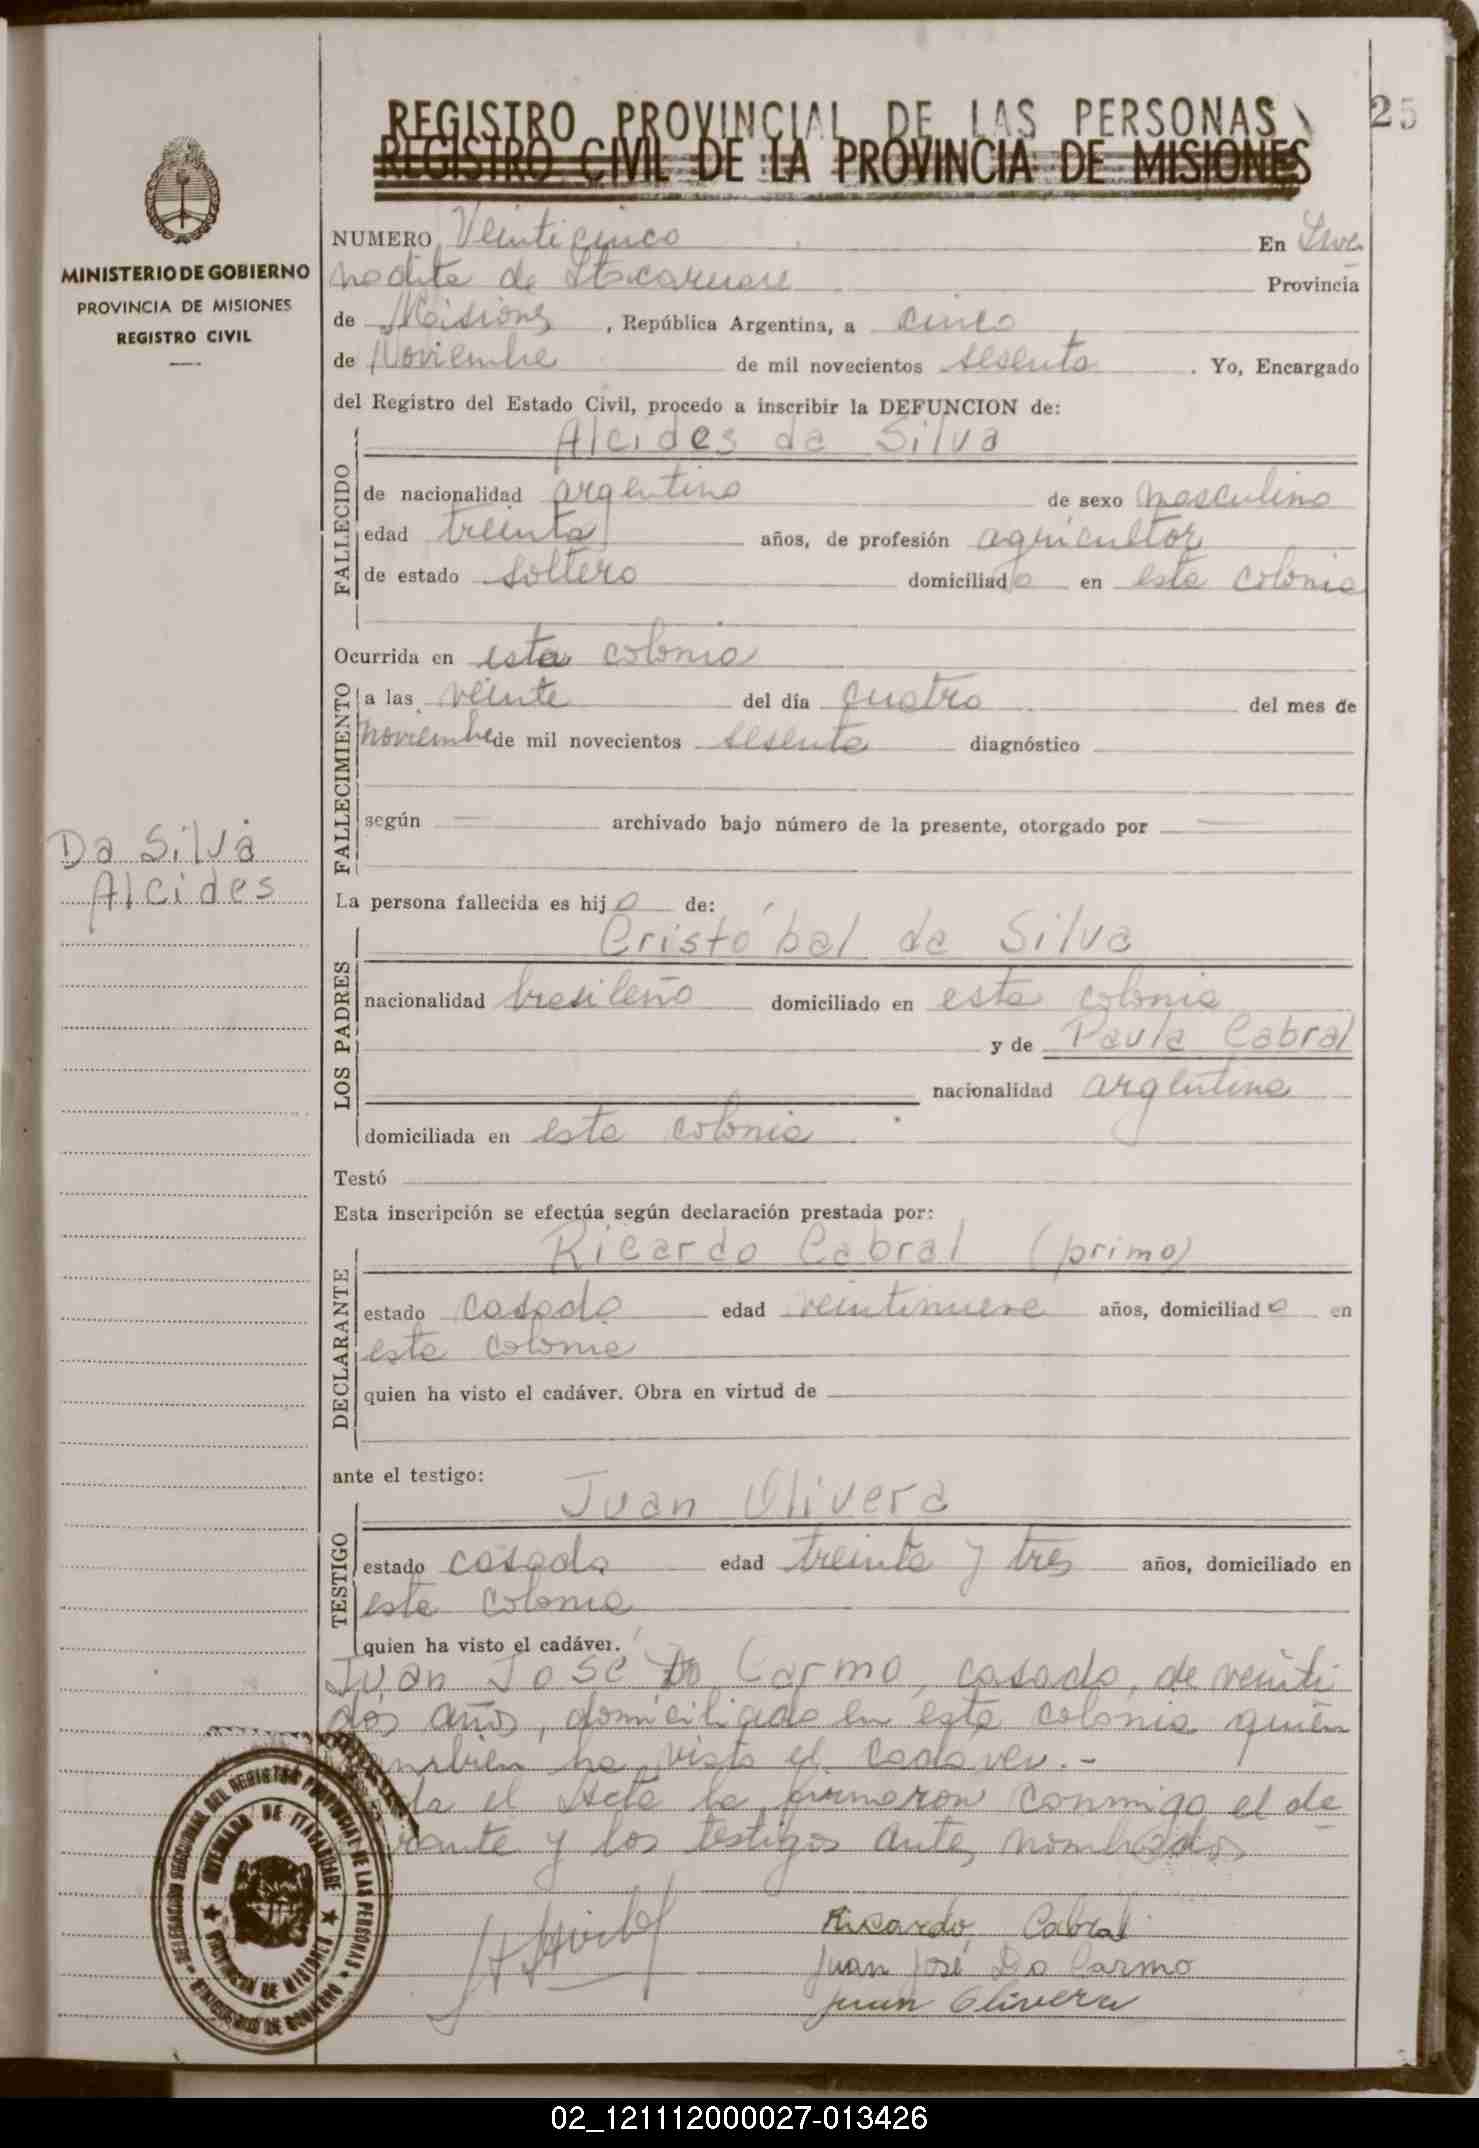 REGISTRO PROVINCIAL DE LAS PERSONAS
REGISTRO CIVIL DE LA PROVINCIA DE MISIONES
25
MINISTERIO DE GOBIERNO
PROVINCIA DE MISIONES
REGISTRO CIVIL
NUMERO Veinticinco En Inver
nadita de Itacaruaré Provincia
de Misiones, República Argentina, a cinco
de Noviembre de mil novecientos sesenta. Yo, Encargado
del Registro del Estado Civil, procedo a inscribir la DEFUNCION de:
Alcides da Silva
FALLECIDO
de nacionalidad argentino de sexo masculino
edad treinta años, de profesión agricultor
de estado soltero domiciliado en esta colonia
Ocurrida en esta colonia
FALLECIMIENTO
a las veinte del día cuatro del mes de
noviembre de mil novecientos sesenta diagnóstico
según archivado bajo número de la presente, otorgado por
Da Silva
Alcides
La persona fallecida es hijo de:
Cristóbal da Silva
LOS PADRES
nacionalidad brasileño domiciliado en esta colonia
y de Paula Cabral
nacionalidad argentina
domiciliada en esta colonia
Testó
Esta inscripción se efectúa según declaración prestada por:
Ricardo Cabral (primo)
DECLARANTE
estado casado edad veintinueve años, domiciliado en
esta colonia
quien ha visto el cadáver. Obra en virtud de
ante el testigo:
Juan Olivera
TESTIGO
estado casado edad treinta y tres años, domiciliado en
esta colonia
quien ha visto el cadáver.
Juan José Do Carmo, casado, de veinti
dos años, domiciliado en esta colonia quien
también ha visto el cadaver.-
da el Acta la firmaron conmigo el de
rante y los testigos antes nombrados
Ricardo Cabral
Juan José Do Carmo
Juan Olivera
DELEGACION SECCIONAL DEL REGISTRO PROVINCIAL DE LAS PERSONAS
PROVINCIA DE MISIONES
02_121112000027-013426